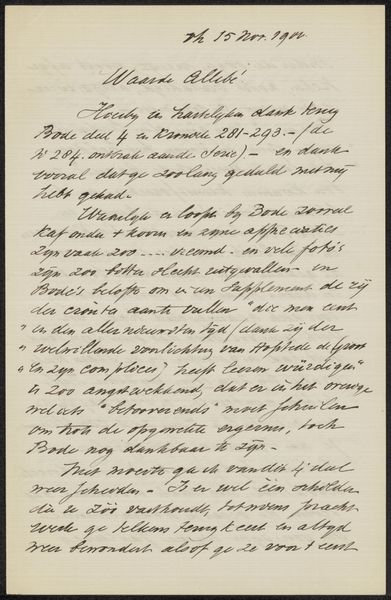 rh 15 Nov. 1900
Waarde Allebé
Hierbij en hartelijken dank terug
Bode deel 4 en Kroniek 281-293. - (de
N° 284. ontbrak aan de serie) - en dank
vooral dat ge zoolang geduld met mij
hebt gehad.
Waarlijk er loopt bij Bode zooveel
Kaf onder 't koorn en zijne appreciaties
zijn vaak zoo .... vreemd. en vele foto's
zijn zoo bitter slecht uitgevallen en
Bode's belofte om in een Supplement de rij
der aante vullen "die men eerst
" in den allernieuwsten tijd (dank zij der
" welwillende voorlichting van Hofstede de Groot
" en zijn complices) heeft leeren würdigen"
is zoo angstwekkend, dat er in het overige
wel iets moet schuilen
om trots de opgewekte ergernis, toch
Bode nog dankbaar te zijn.
Met moeite ga ik van dit 4e deel
weer scheiden. - Is er wel één schilder
die u zóó vasthoudt, tot wiens pracht
werk ge telkens terugkeert en altijd
weer bewondert alsof ge ze voor 't eerst